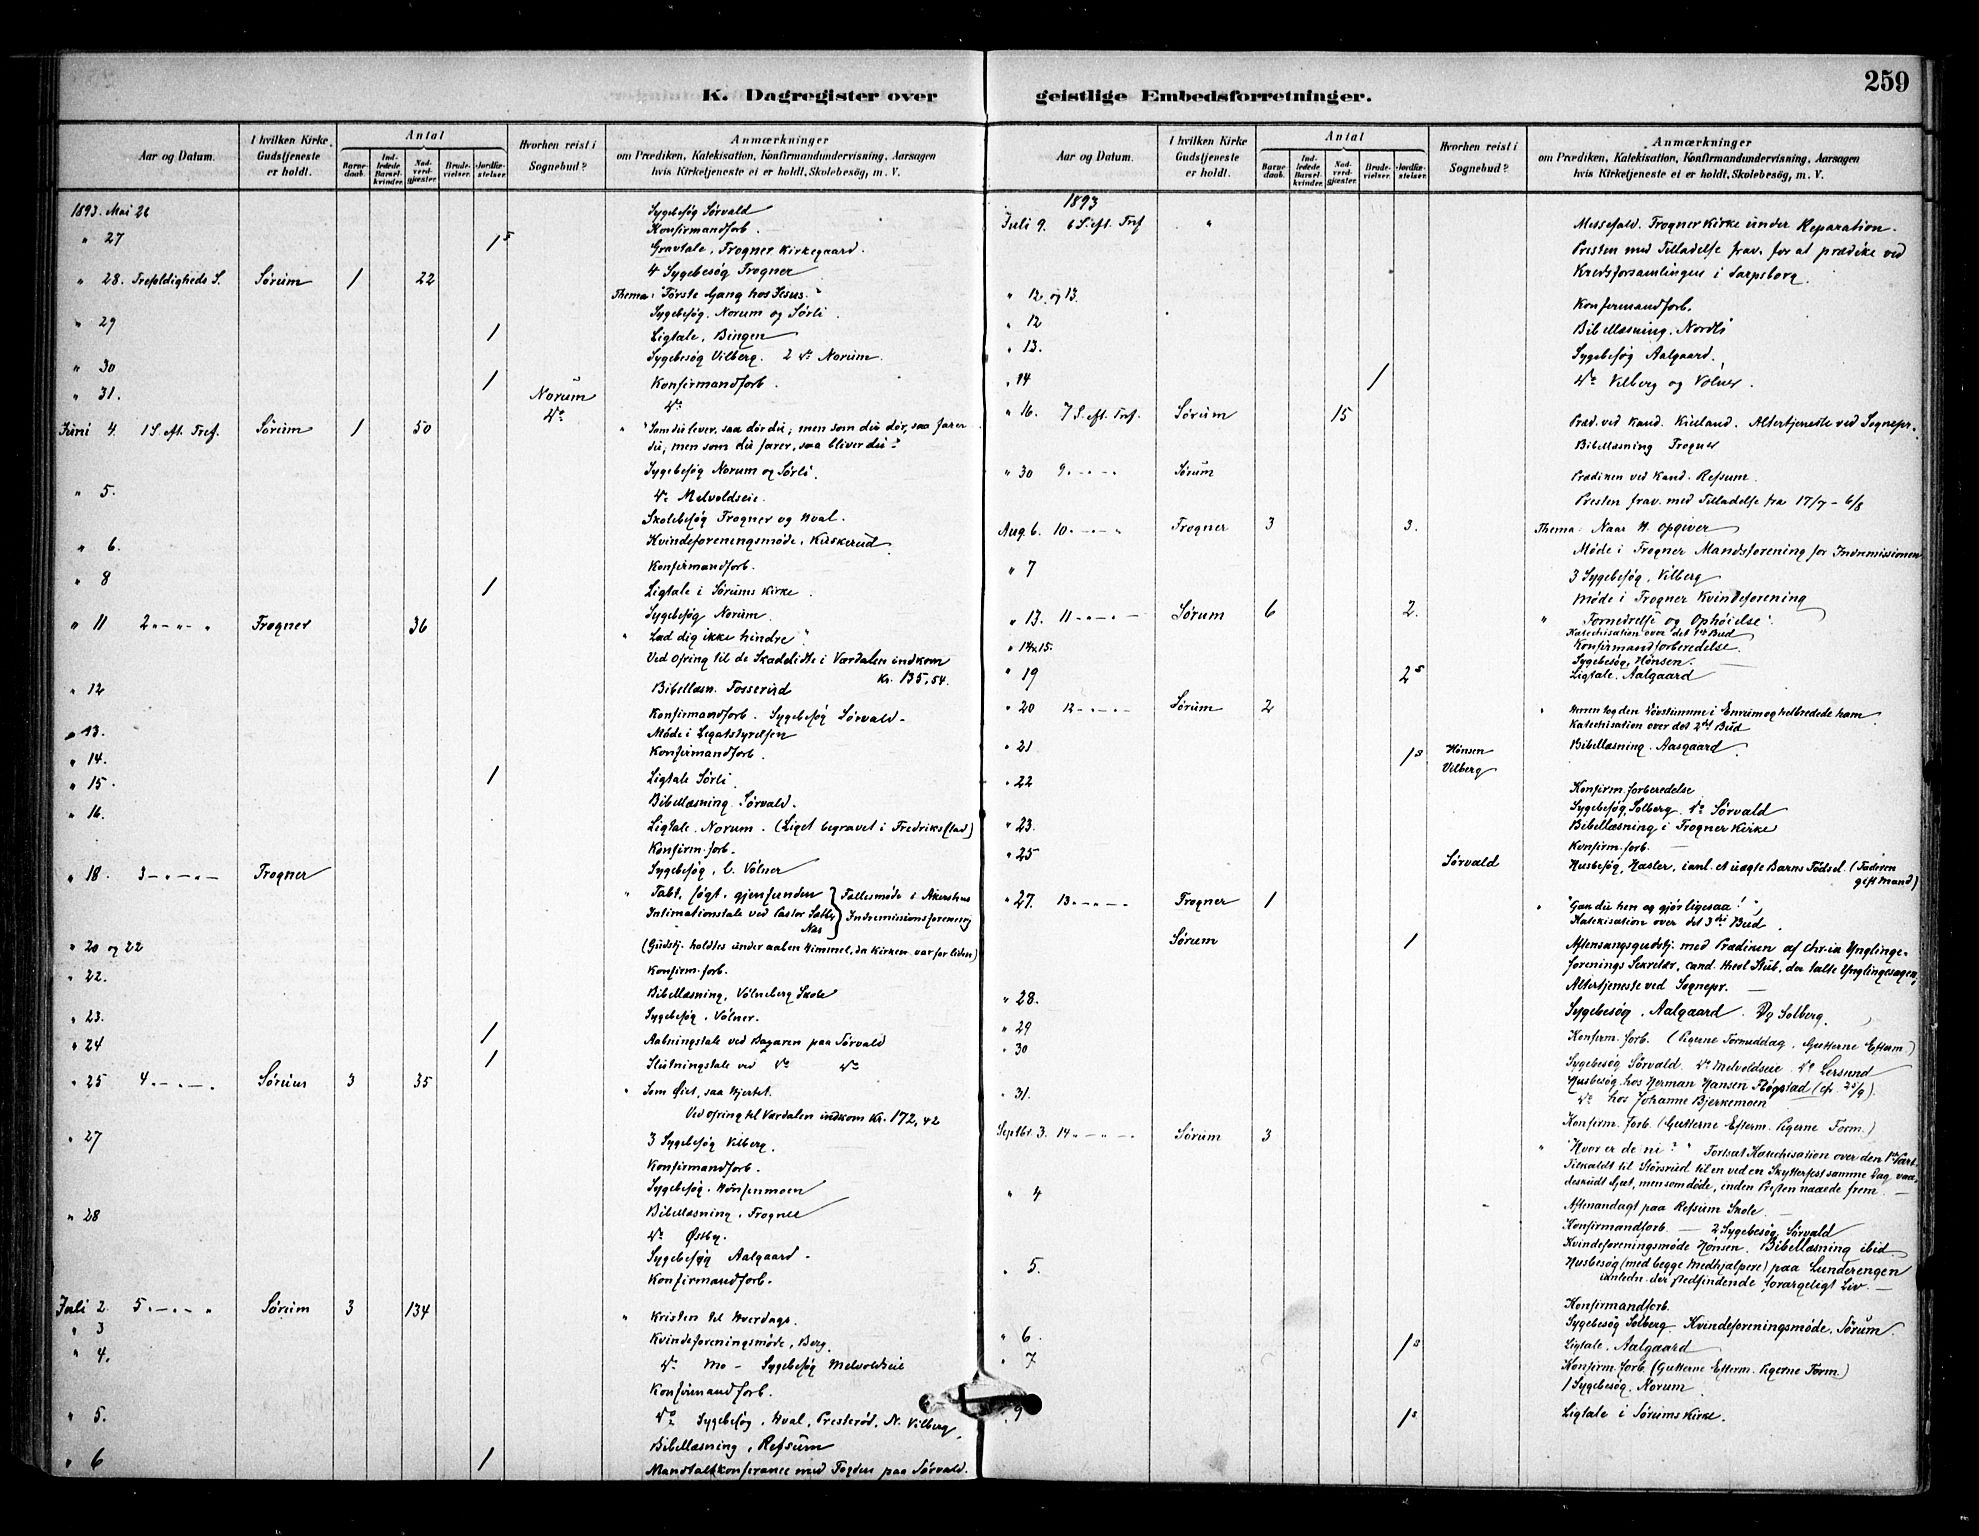 259
K. Dagregister over geistlige Embedsforretninger.
Aar og Datum.
I hvilken Kirke Gudstjeneste er holdt.
Antal
Barnedaab.
Indledede Barselkvinder.
Nadverdgjæster.
Brudevielser.
Jordfæstelser.
Hvorhen reist i Sognebud?
Anmærkninger
om Prædiken, Katekisation, Konfirmandundervisning, Aarsagen
hvis Kirketjeneste ei er holdt, Skolebesøg, m. V.
1893. Mai 26 Sygebesøg Sørvald
" 27 Konfirmandforb.
1 s Gravtale, Frogner Kirkegaard.
4 Sygebesøg Frogner
" 28. Trefoldigheds S. Sørum 1 22
Thema: "Første Gang hos Jesus."
Sygebesøg. Norum og Sørli.
" 29 1 Ligtale, Bingen
Sygebesøg Vilberg. 2 do Norum.
" 30 1 Konfirmandforb.
" 31. Norum do
do
Juni 4. 1 S. eft. Tref. Sørum 1 50 " "Som du lever, saa dør du; men som du dør, saa farer
du; men som du farer, saa bliver du"
Sygebesøg Norum og Sørli.
" 5. do Melvoldseie.
Skolebesøg Frogner og Hval.
" 6. Kvindeforeningsmøde, Kuskerud
Konfirmandforb.
" 8 1 Ligtale i Sørums Kirke.
Sygebesøg Norum.
" 11 2 - " - " - " Frogner 36 " "Lad dig ikke hindre"
Ved Ofring til de Skadelidte i Værdalen indkom
Kr. 135,54.
" 12 Bibellæsn. Fosserud
Konfirmandforb. Sygebesøg Sørvald -
" 13. Møde i Legatstyrelsen
" 14. Konfirmandforb.
" 15. 1 Ligtale Sørli.
" 16. Bibellæsning Sørvald.
Ligtale. Norum. (Liget begravet i Fredriksstad)
Konfirm.forb.
" 18. 3 - " - " - Frogner Sygebesøg, L. Vølner
" Tabt, søgt, gjenfunden } Fællesmøde i Akershus
Intimationstale ved Pastor } Indremissionsforening
Næs
" 20 og 22 (Gudstj. holdtes under aaben Himmel, da Kirken var for liden)
Konfirm.forb.
" 22. Bibellæsning, Vølneberg Skole
" 23. Sygebesøg, Vølner.
" 24 1 Aabningstale ved Bazaren paa Sørvald
1 Slutningstale ved do do
" 25 4 - " - " - Sørum 3 35 " Som Øiet, saa Hjertet.
Ved Ofring til Værdalen indkom Kr. 172,42
" 27 3 Sygebesøg Vilberg.
Konfirmandforb.
Sygebesøg. Hønsenmoen
" 28 Bibellæsning, Frogner
do Østby.
Sygebesøg Aalgaard -
Konfirmandforb.
Juli 2. 5 - " - " - " Sørum 3 134 " Kristen til Hverdags.
" 3 Kvindeforeningsmøde, Berg.
" 4. do Mo - Sygebesøg Melvoldseie
Konfirmandforb.
" 5. do Sygebesøg, Hval, Presterød, N. Vilberg,
Bibellæsning, Refsum
" 6 1 Mandtalskonferance med Fogden paa Sørvald.
Aar og Datum.
I hvilken Kirke Gudstjeneste er holdt.
Antal
Barnedaab.
Indledede Barselkvinder.
Nadverdgjæster.
Brudevielser.
Jordfæstelser.
Hvorhen reist i Sognebud?
Anmærkninger
om Prædiken, Katekisation, Konfirmandundervisning, Aarsagen
hvis Kirketjeneste ei er holdt, Skolebesøg, m. V.
1893
Juli 9. 6 S. eft. Tref " Messefald. Frogner Kirke under Reparation.
Presten med Tilladelse frav. for at prædike ved
Kredsforsamlingen i Sarpsborg.
" 12 og 13. Konfirmandforb.
" 12 Bibellæsning, Nordli
" 13. Sygebesøg Aalgaard.
" 14 1 do Vilberg og Vølner.
" 16. 7 S. eft. Tref. Sørum 15 Præd. ved Kand. Kielland. Altertjeneste ved Sognepr.
Bibellæsning Frogner
" 30 9 - " - " - Sørum Prædiken ved Kand. Refsum.
Presten frav. med Tilladelse fra 17/7 - 6/8
Aug. 6. 10 - " - " - " Frogner 3 3. Thema: Naar H. opgiver
Møde i Frogner Mandsforening for Indremissionen
" 7 3 Sygebesøg, Vilberg
Møde i Frogner Kvindeforening
" 13. 11 - " - " - Sørum 6 2. " "Fornedrelse og Ophøielse".
Katechisation over det 1ste Bud
" 14 & 15. Konfirmandforberedelse.
Sygebesøg, Hønsen.
" 19 2 s Ligtale. Aalgaard
" 20 12 - " - " - Sørum 2 " Herren tog den Døvstumme i Enrum og helbredede ham
Katechisation over det 2det Bud
" 21 1 s Hønsen Bibellæsning. Aasgaard
Vilberg
" 22 Konfirm.forberedelse
Sygebesøg Solberg. do Sørvald
" 23. Bibellæsning i Frogner Kirke
Konfirm.forb.
" 25 Sørvald Husbesøg, Hasler, i anl. et uægte Barns Fødsel. (Faderen
gift Mand)
" 27. 13 - " - " - Frogner 1 " "Gaa du hen og gjør ligesaa!",
Katekisation over det 3die Bud.
Sørum 1 Aftensangsgudstj. med Prædiken af Chr.ia Ynglinge-
forenings Sekretær, cand. theol Stub, der talte Ynglingesagen,
Altertjeneste ved Sognepr. -
" 28. Sygebesøg. Aalgaard. Do Solberg.
" 29 Konfirm.forb. (Pigerne Formiddag, Gutterne Efterm.)
" 30 Sygebesøg Sørvald. do Melvoldseie do Lersund
Husbesøg hos Herman Hansen Fløgstad (cfr. 25/9).
" 31. do hos Johanne Bjerkemoen
Konfirm. forb. (Gutterne Efterm. Pigerne Form.)
Septbr. 3. 14 - " - " - Sørum 3 " "Hvor er de ni?" Fortsat Katechisation over den 1ste Part.
Tilkaldt til Størsrud til en ved en Skytterfest samme Dag vaa-
deskudt Gjæt, men som døde, inden Presten naaede frem. -
" 4 Aftenandagt paa Refsum Skole.
Konfirmandforb. - 2 Sygebesøg Sørvald
Kvindeforeningsmøde Hønsen. Bibellæsning ibid.
" 5. Husbesøg (med begge Medhjælpere) paa Lunderengen
i anledn. der stedfindende forargeligt Liv. -
Konfirmandforb.
" 6. Sygebesøg Solberg. Kvindeforeningsmøde. Sørum.
" 7. 1 s Ligtale. Aalgaard
Konfirm.forb. (Gutterne Efterm. Pigerne Form.)
1 Sygebesøg. Norum
" 9 1 s Ligtale i Sørums Kirke.